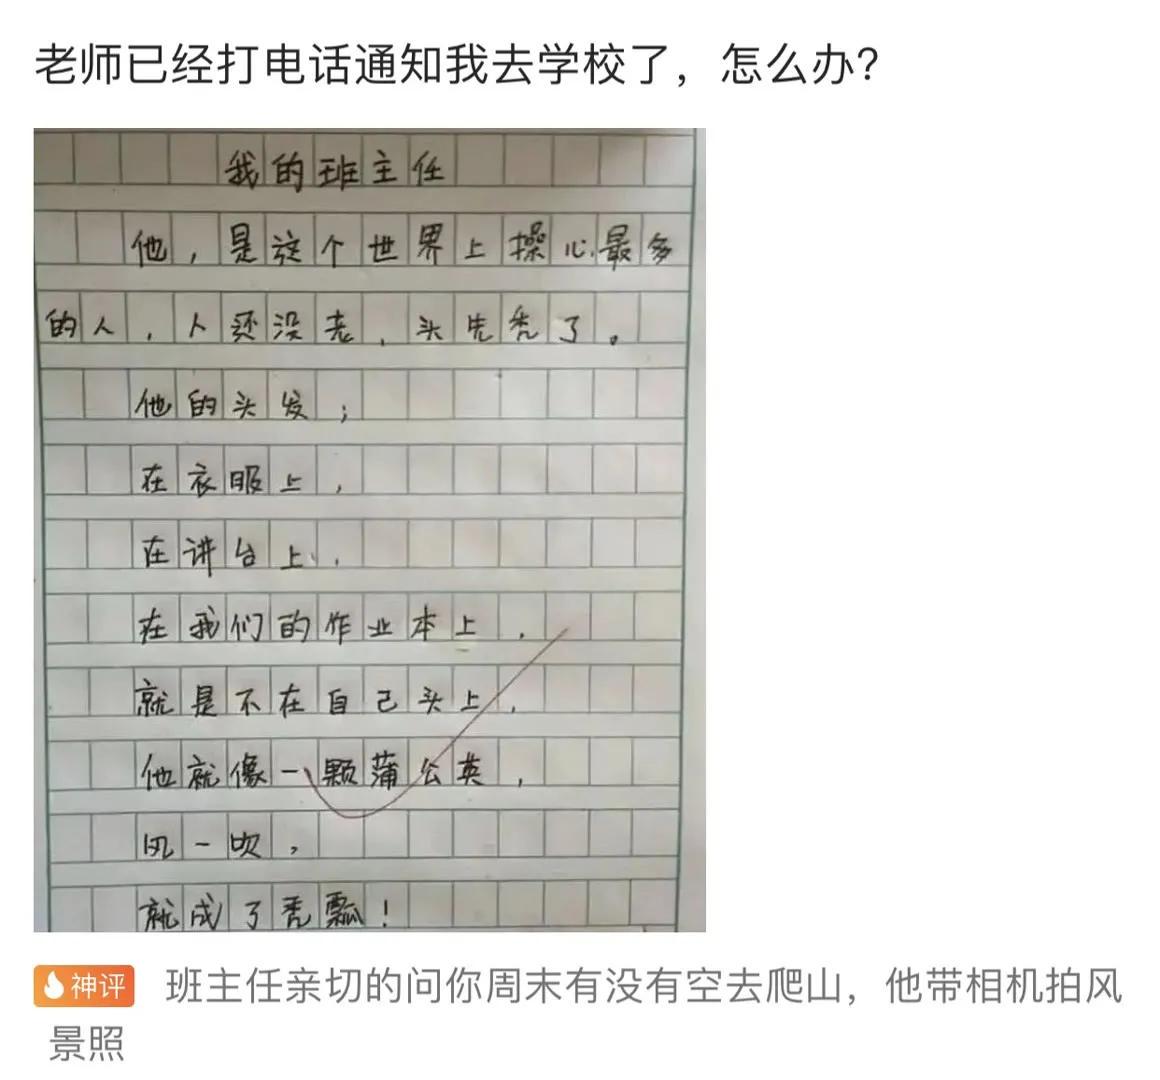 老师已经打电话通知我去学校了，怎么办?
我的班主任
他，是这个世界上操心最多
的人，人还没老，头先秃了。
他的头发；
在衣服上，
在讲台上，
在我们的作业本上，
就是不在自己头上，
他就像一颗蒲公英，
风一吹，
就成了秃瓢！
神评 班主任亲切的问你周末有没有空去爬山，他带相机拍风
景照